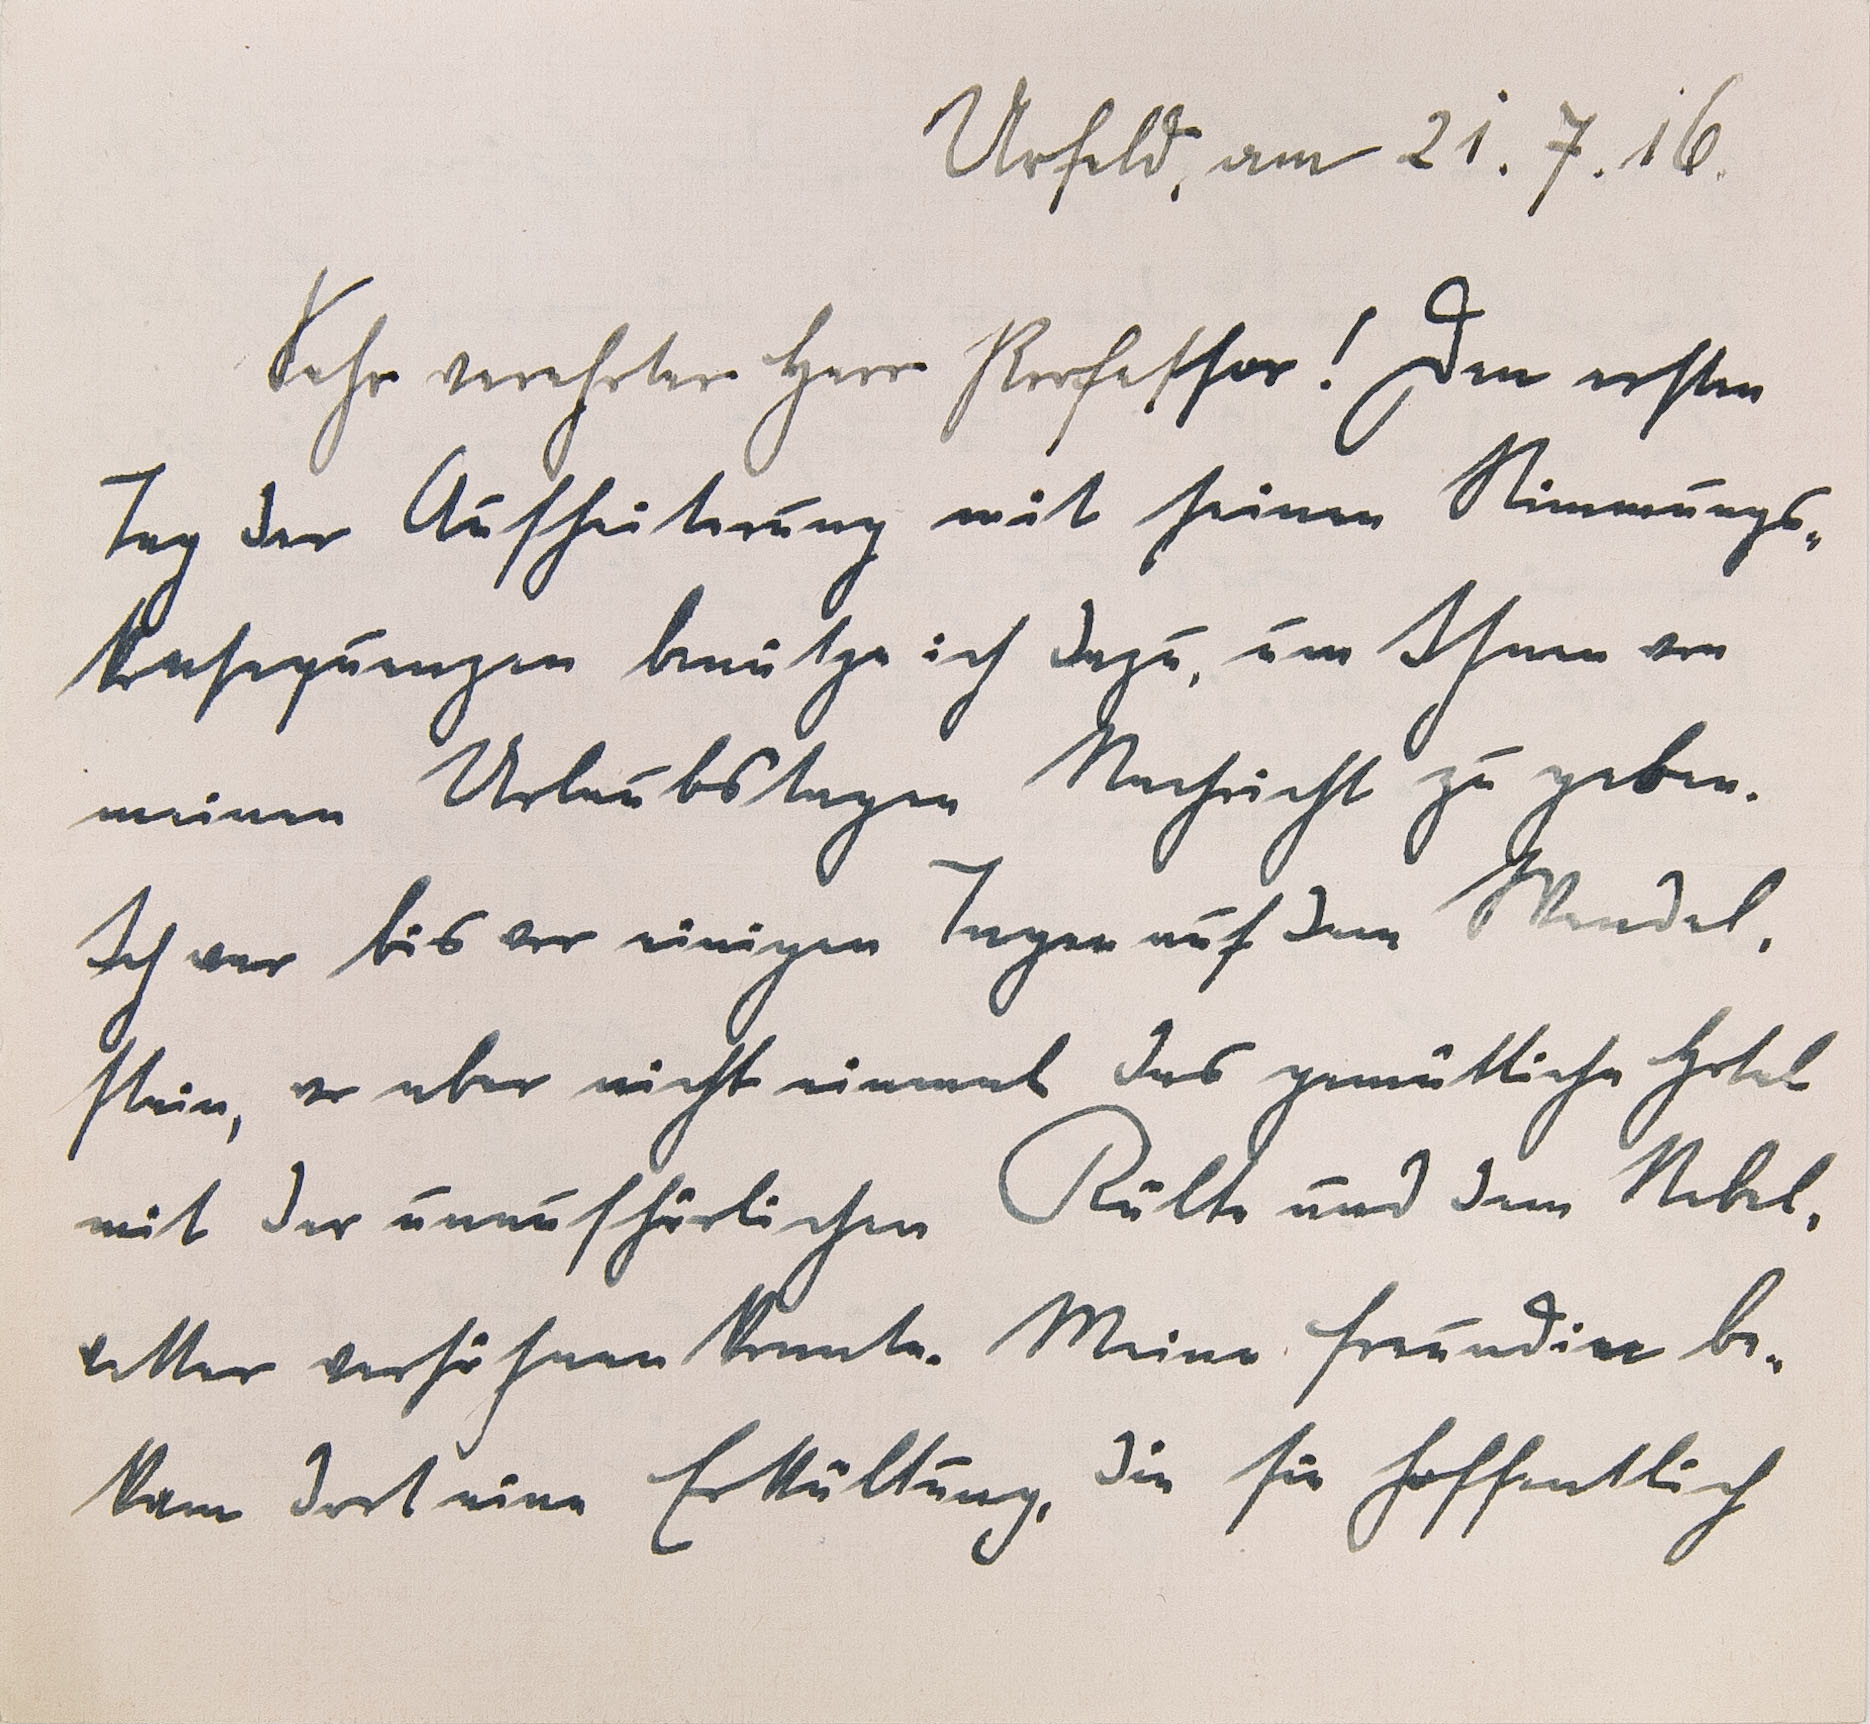 Urfeld, am 21.7.16.
Sehr verehrter Herr Professor! Den ersten
Tag der Aufheiterung mit seinen Stimmungs-
konsequenzen benütze ich dazu, um Ihnen von
meinen Urlaubstagen Nachricht zu geben.
Ich war bis vor einigen Tagen auf dem Wendel-
stein, wo aber nicht einmal das gemütliche Hotel
mit der unaufhörlichen Kälte und dem Nebel,
wetter versöhnen konnte. Meine Freundin be-
kam dort eine Erkältung, die sie hoffentlich